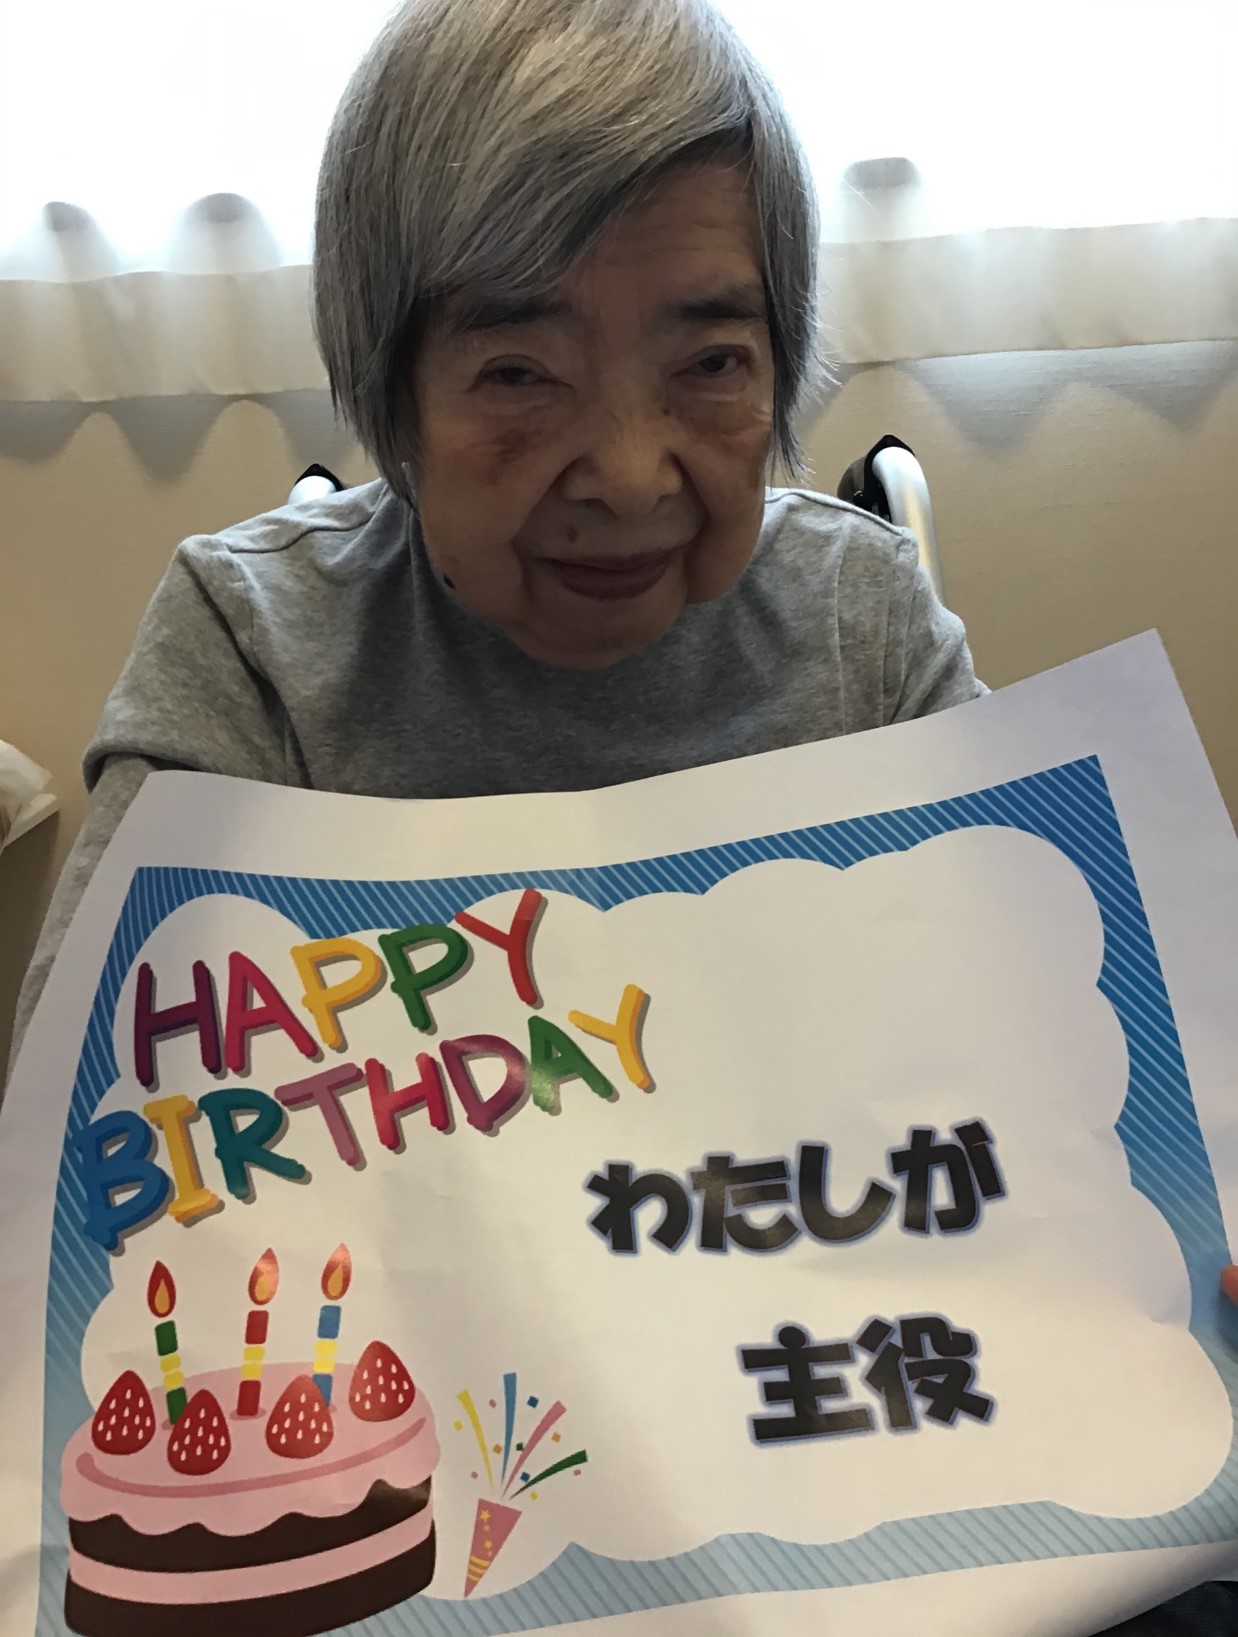 HAPPY
BIRTHDAY
わたしが
主役